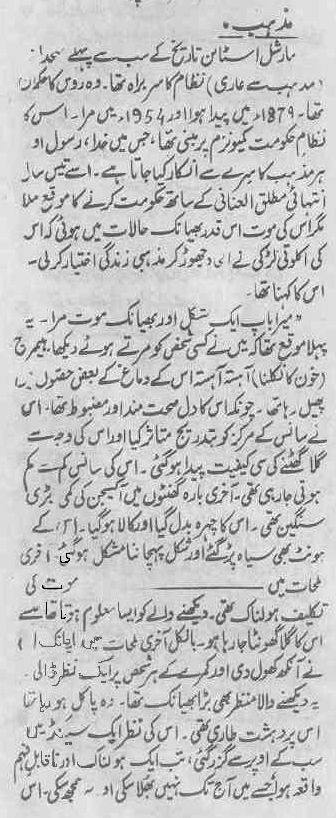 مذہب •
مارشل اسٹالن تاریخ کے سب سے پہلے ملحدانہ
(مذہب سے عاری) نظام کا سربراہ تھا۔ وہ روس کا حکمراں
تھا۔ 1879ء میں پیدا ہوا اور 1954ء میں مرا۔ اس کا
نظام حکومت کمیونزم پر مبنی تھا، جس میں خدا، رسول اور
ہر مذہب کا سرے سے انکار کیا جاتا ہے۔ اسے تیس سال
انتہائی مطلق العنانی کے ساتھ حکومت کرنے کا موقع ملا
مگر اس کی موت اس قدر بھیانک حالات میں ہوئی کہ اس
کی اکلوتی لڑکی نے چھوڑ کر مذہبی زندگی اختیار کر لی۔
اس کا کہنا تھا۔
"میرا باپ ایک مشکل اور بھیانک موت مرا۔ یہ
پہلا موقع تھا کہ میں نے کسی شخص کو مرتے ہوئے دیکھا۔ ہیمرج
(خون کا نکلنا) آہستہ آہستہ اس کے دماغ کے بعض حصوں میں
پھیل رہا تھا۔ چونکہ اس کا دل صحت مند اور مضبوط تھا۔ اس
نے سانس کے مرکز کو بتدریج متاثر کیا اور اس کی وجہ سے
گلا گھٹنے کی سی کیفیت پیدا ہو گئی۔ اس کی سانس کم سے کم
ہوتی جا رہی تھی۔ آخری بارہ گھنٹوں میں آکسیجن کی کمی بڑی
سنگین تھی۔ اس کا چہرہ بدل گیا اور کالا ہو گیا۔ اس کے
ہونٹ بھی سیاہ پڑ گئے اور شکل پہچاننا مشکل ہو گئی آخری
لمحات میں موت کی
تکلیف ہولناک تھی۔ دیکھنے والے کو ایسا معلوم ہوتا تھا جیسے
اس کا گلا گھونٹا جا رہا ہو۔ بالکل آخری لمحات میں اچانک اس
نے آنکھ کھول دی اور کمرے کے ہر شخص پر ایک نظر ڈالی۔
یہ دیکھنے والا منظر بھی بڑا بھیانک تھا۔ وہ پاگل ہو رہا تھا
اس پر دہشت طاری تھی۔ اس کی نظر ایک سیکنڈ میں
سب کے اوپر سے گزر گئی، تب ایک ہولناک اور ناقابل فہم
واقعہ ہوا جسے میں آج تک نہیں بھلا سکی اور نہ سمجھ سکی۔ اس